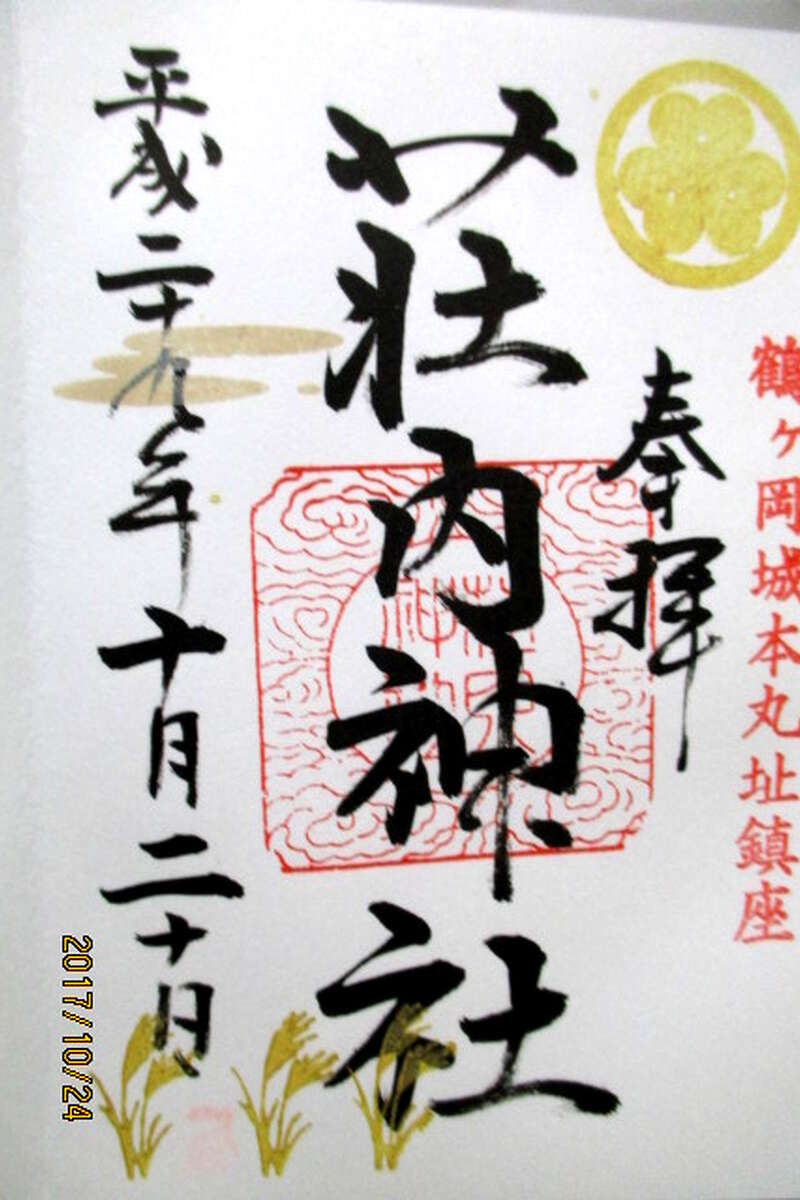 鶴ヶ岡城本丸址鎮座
奉拝
荘内神社
平成二十九年十月二十日
2017/10/24